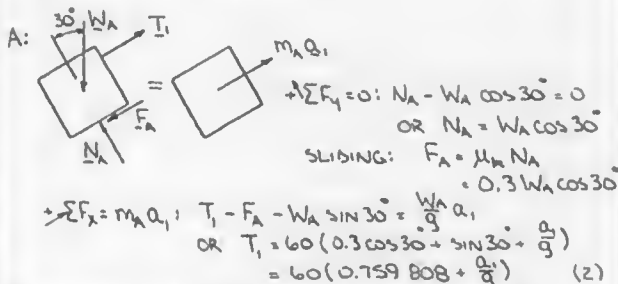 A:
30° W_A T_1
F_A
N_A
=
m_A a_1
+↖ΣF_y = 0: N_A - W_A cos 30° = 0
OR N_A = W_A cos 30°
SLIDING: F_A = μ_k N_A
= 0.3 W_A cos 30°
+↗ΣF_x = m_A a_1: T_1 - F_A - W_A SIN 30° = W_A/g a_1
OR T_1 = 60(0.3 cos 30° + SIN 30° + a_1/g)
= 60(0.759 808 + a_1/g) (2)